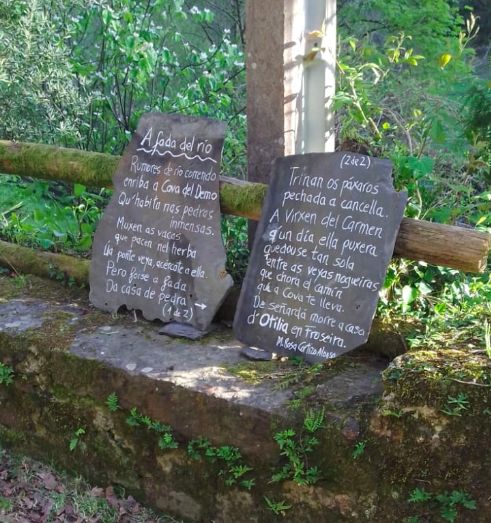 A fada del río
Rumores de río correndo
enriba a Cova del Demo
Qu'habita nas pedras
inmensas.
Muxen as vacas
que pacen nel herba
Úa ponte veya, acércate a ella.
Pero forse a fada
Da casa de pedra
(1 de 2)
(2 de 2)
Trinan os páxaros
pechada a cancella.
A Virxen del Carmen
q'un día ella puxera
Quedouse tan sola
entre as veyas nogueiras
que chora el camín
que a Cova te lleva.
De señardá morre a casa
d'Otilia en Froseira.
Mª Rosa Cotizo Alonso